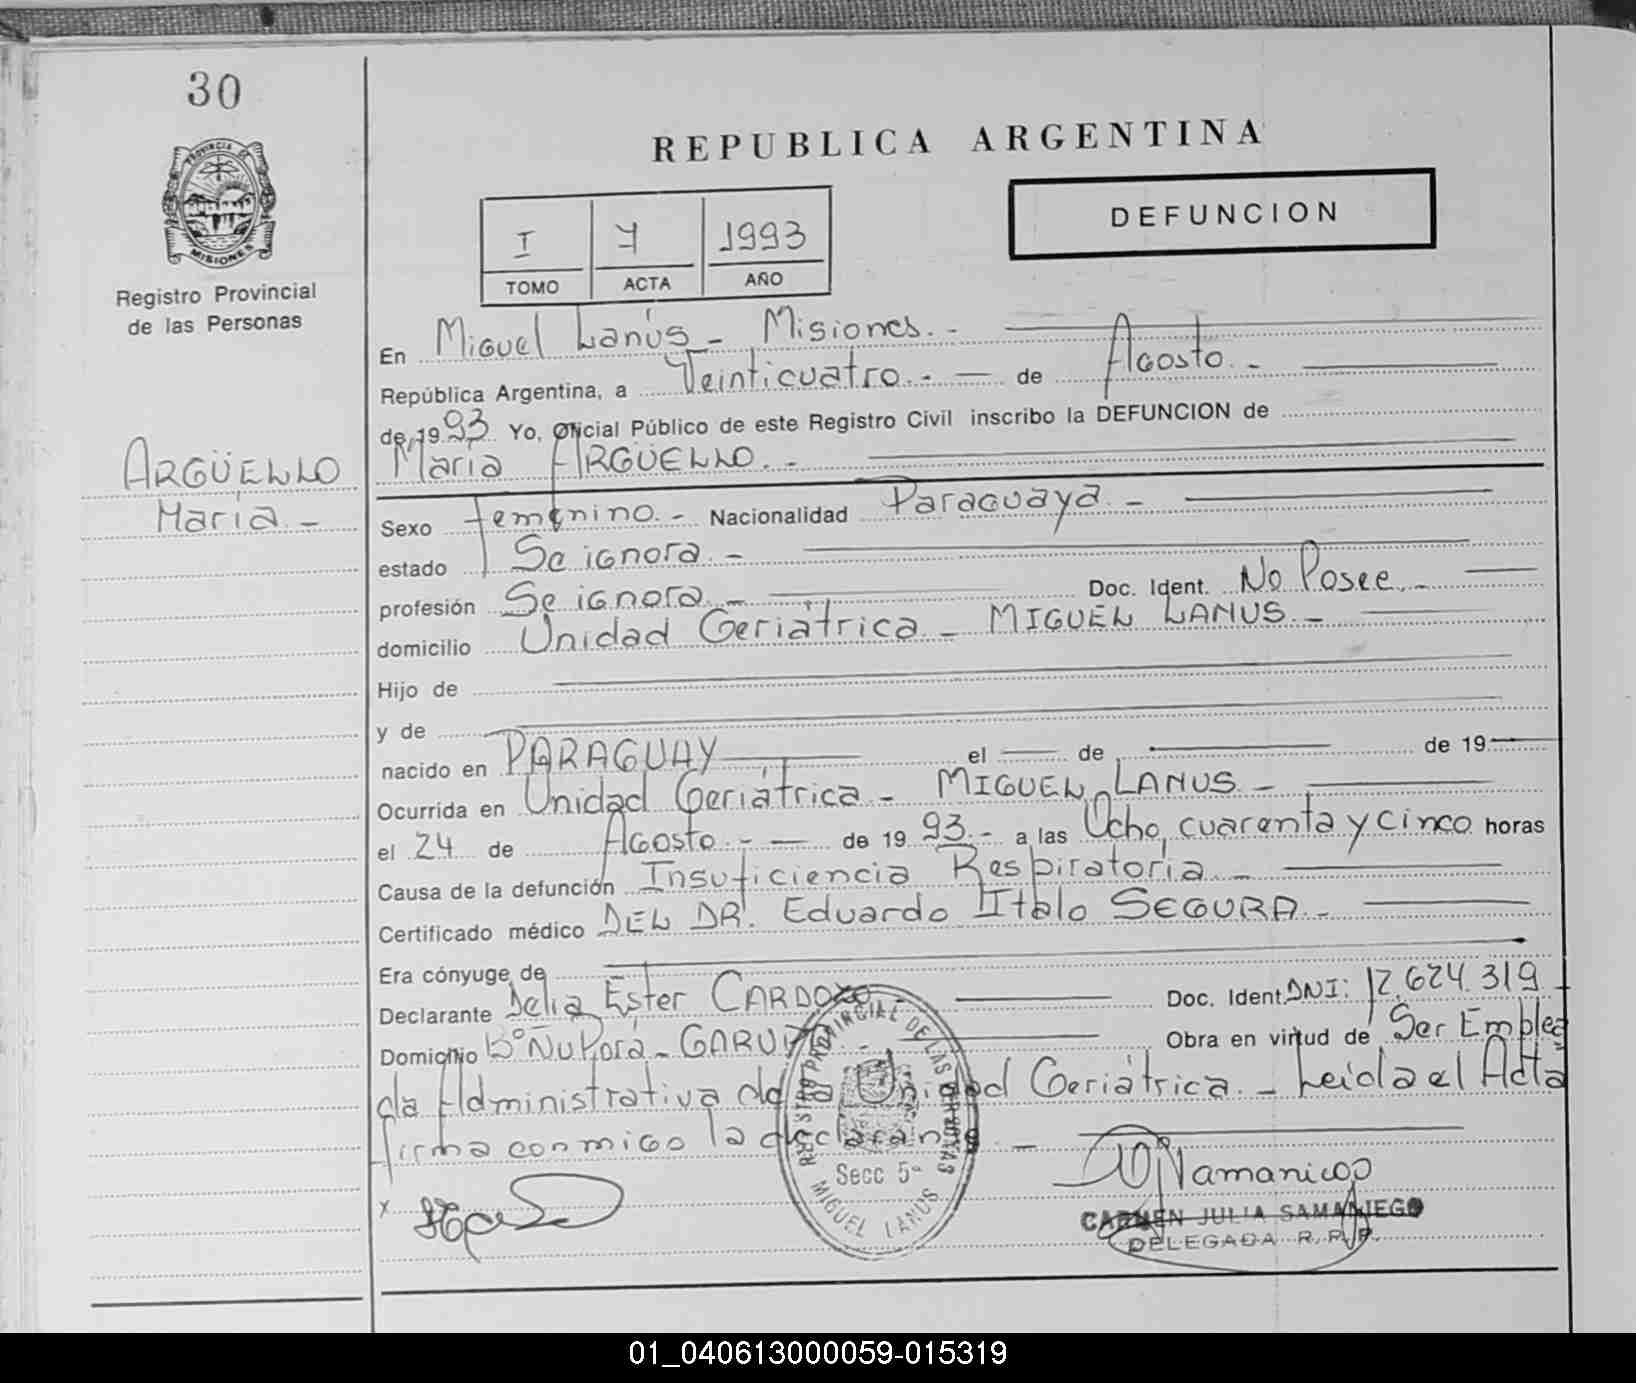 30
PROVINCIA DE
MISIONES
Registro Provincial
de las Personas
ARGÜELLO
María.-
REPUBLICA ARGENTINA
I 7 1993
TOMO ACTA AÑO
DEFUNCION
En Miguel Lanús - Misiones.-
República Argentina, a Veinticuatro.- de Agosto.-
de 1993 Yo, Oficial Público de este Registro Civil inscribo la DEFUNCION de
María ARGÜELLO.-
Sexo femenino.- Nacionalidad Paraguaya.-
estado Se ignora.-
profesión Se ignora.- Doc. Ident. No Posee.-
domicilio Unidad Geriátrica - MIGUEL LANUS.-
Hijo de
y de
nacido en PARAGUAY el de de 19
Ocurrida en Unidad Geriátrica - MIGUEL LANUS -
el 24 de Agosto.- de 1993.- a las Ocho, cuarenta y cinco horas
Causa de la defunción Insuficiencia Respiratoria.-
Certificado médico DEL DR. Eduardo Italo SEGURA.-
Era cónyuge de
Declarante Delia Ester CARDOZO.- Doc. Ident. DNI: 12.624.319
Domicilio B° Ñu Porá - GARUPA.- Obra en virtud de Ser Emplea
da Administrativa de la Unidad Geriátrica.- Leída el Acta
firma conmigo la declarante.-
X
REGISTRO PROVINCIAL DE LAS PERSONAS
Secc 5ª
MIGUEL LANUS
CARMEN JULIA SAMANIEGO
DELEGADA R.P.P.
01_040613000059-015319